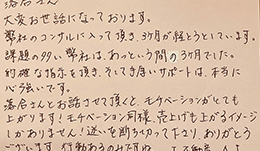 落合さん
大変お世話になっております。
弊社のコンサルに入って頂き、3ヶ月が経とうとしています。
課題の多い弊社は、あっという間の3ヶ月でした。
的確な指示を頂き、そしてき厚いサポートは、本当に
心強いです。
落合さんとお話させて頂くと、モチベーションがとても
上がります!モチベーション同様、売上げも上がるイメージ
しかありません!迷いを断ち切って下さり、ありがとう
ございます。行動あるのみですね